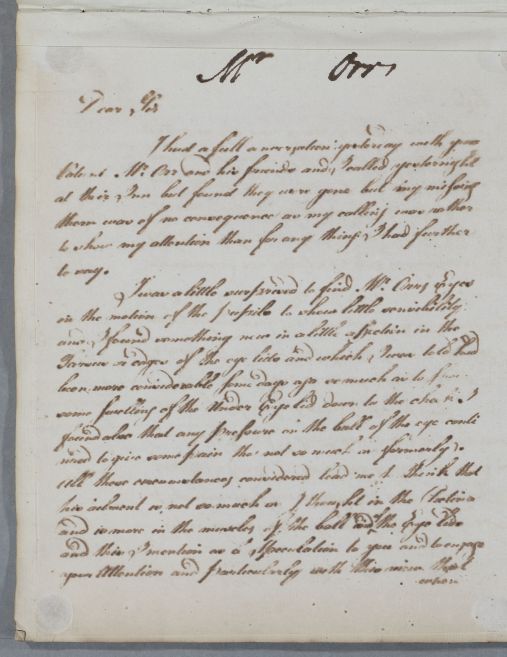 Mr Orr
Dear Sir
I had a full conversation yesterday with your
Patient Mr Orr and his friends and I called yesternight
at their Inn but found they were gone but my missing
them was of no consequence as my calling was rather
to shew my attention than for any thing I had further
to say.
I was a little surprised to find Mr Orrs Eyes
in the motion of the Pupils to shew little sensibility
and I found something new in a little affection in the
Tarsus or edges of the eye lids and which I was told had
been more considerable some days ago so much as to
some swelling of the Under Eye lid down to the cheek. I
found also that any pressure in the ball of the eye conti
nued to give some pain tho' not so much as formerly.
All these circumstances considered lead me to think that
his ailment is not so much as I thought in the Retina
and is more in the muscles of the ball and of the Eye lids
and this I mention as a Speculation to you and to engage
your Attention and particularly with this view that